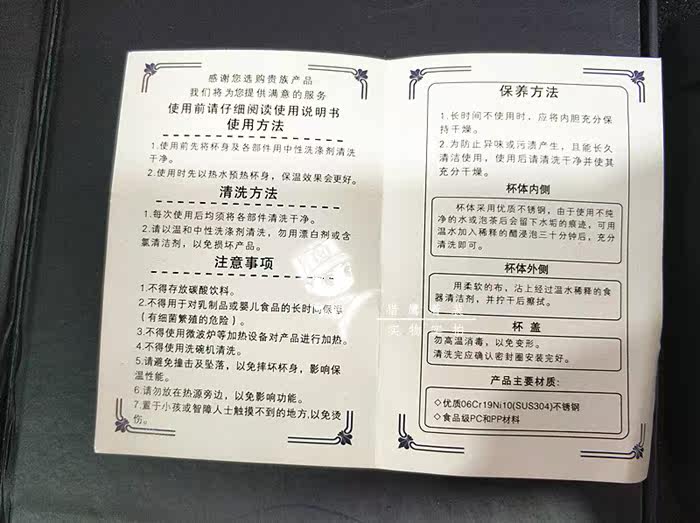 感谢您选购贵族产品
我们将为您提供满意的服务
使用前请仔细阅读使用说明书
使用方法
1.使用前先将杯身及各部件用中性洗涤剂清洗
干净。
2.使用时先以热水预热杯身，保温效果会更好。
清洗方法
1.每次使用后均须将各部件清洗干净。
2.请以温和中性洗涤剂清洗，勿用漂白剂或含
氯清洁剂，以免损坏产品。
注意事项
1.不得存放碳酸饮料。
2.不得用于对乳制品或婴儿食品的长时间保温
（有细菌繁殖的危险）。
3.不得使用微波炉等加热设备对产品进行加热。
4.不得使用洗碗机清洗。
5.请避免撞击及坠落，以免摔坏杯身，影响保
温性能。
6.请勿放在热源旁边，以免影响功能。
7.置于小孩或智障人士触摸不到的地方,以免烫
伤。
保养方法
1.长时间不使用时，应将内胆充分保
持干燥。
2.为防止异味或污渍产生，且能长久
清洁使用，使用后请清洗干净并使其
充分干燥。
杯体内侧
杯体采用优质不锈钢，由于使用不纯
净的水或泡茶后会留下水垢的痕迹，可用
温水加入稀释的醋浸泡三十分钟后，充分
清洗即可。
杯体外侧
用柔软的布，沾上经过温水稀释的食
器清洁剂，并拧干后擦拭。
杯 盖
勿高温消毒，以免变形。
清洗完应确认密封圈安装完好。
产品主要材质:
◇优质06Cr19Ni10(SUS304)不锈钢
◇食品级PC和PP材料
实物实拍